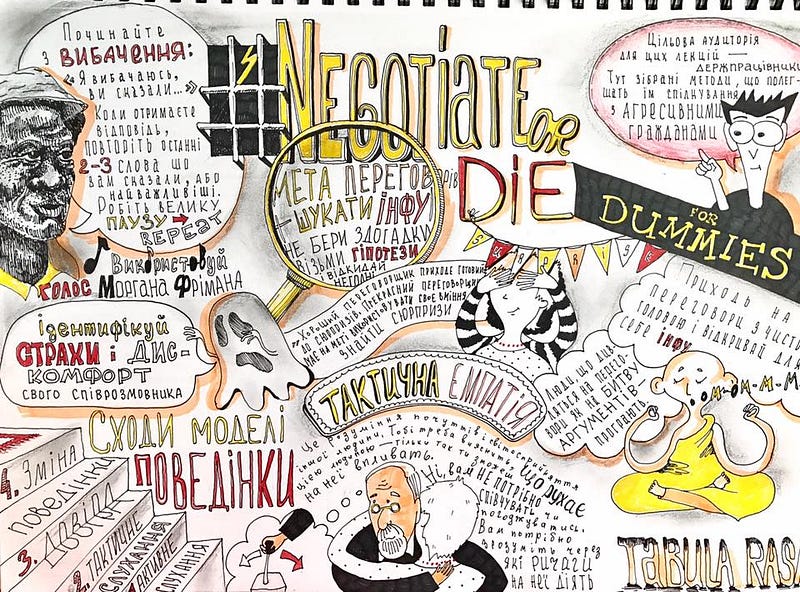 Починайте
з ВИБАЧЕННЯ:
«Я вибачаюсь,
ви сказали...»
Коли отримаєте
відповідь,
повторіть останні
2-3 слова що
вам сказали, або
найважливіші.
Робіть велику
ПАУЗУ → REPEAT
Використовуй
ГОЛОС Моргана Фрімана
# NEGOTIATE OR
DIE
FOR
DUMMIES
Цільова аудиторія
для цих лекцій —
держпрацівники
Тут зібрані методи, що полег-
шать їм спілкування
з АГРЕСИВНИМИ
ГРОМАДЯНАМИ
МЕТА ПЕРЕГОВОРІВ
– ШУКАТИ ІНФУ
НЕ БЕРИ ЗДОГАДКИ
ВІЗЬМИ ГІПОТЕЗИ
І ВІДКИДАЙ
SURPRISE
«Хороший переговорщик приходе готовий
до сюрпризів. Прекрасний переговорщик
має на меті використовувати своє вміння
знайти СЮРПРИЗИ
Приходь на
переговори з чистою
головою і відкривай для
себе ІНФУ
ідентифікуй
СТРАХИ і ДИС-
КОМФОРТ
свого співрозмовника
ТАКТИЧНА ЕМПАТІЯ
Люди що див-
ляться на перего-
вори як на БИТВУ
АРГУМЕНТІВ
програють
О-М-М-М-М
Сходи моделі
ПОВЕДІНКИ
4. Зміна
поведінки
3. ДОВІРА
2. ТАКТИЧНЕ
СЛУХАННЯ
АКТИВНЕ
СЛУХАННЯ
Це розуміння почуттів і світосприйняття
іншої людини. Тобі треба визнати, що рухає
цією людиною – тільки так ти зможеш
на неї впливать.
Ні, вам не потрібно
співчувать чи
погоджуватись.
Вам потрібно
зрозуміть через
які ричаги
на неї діять
TABULA RASA